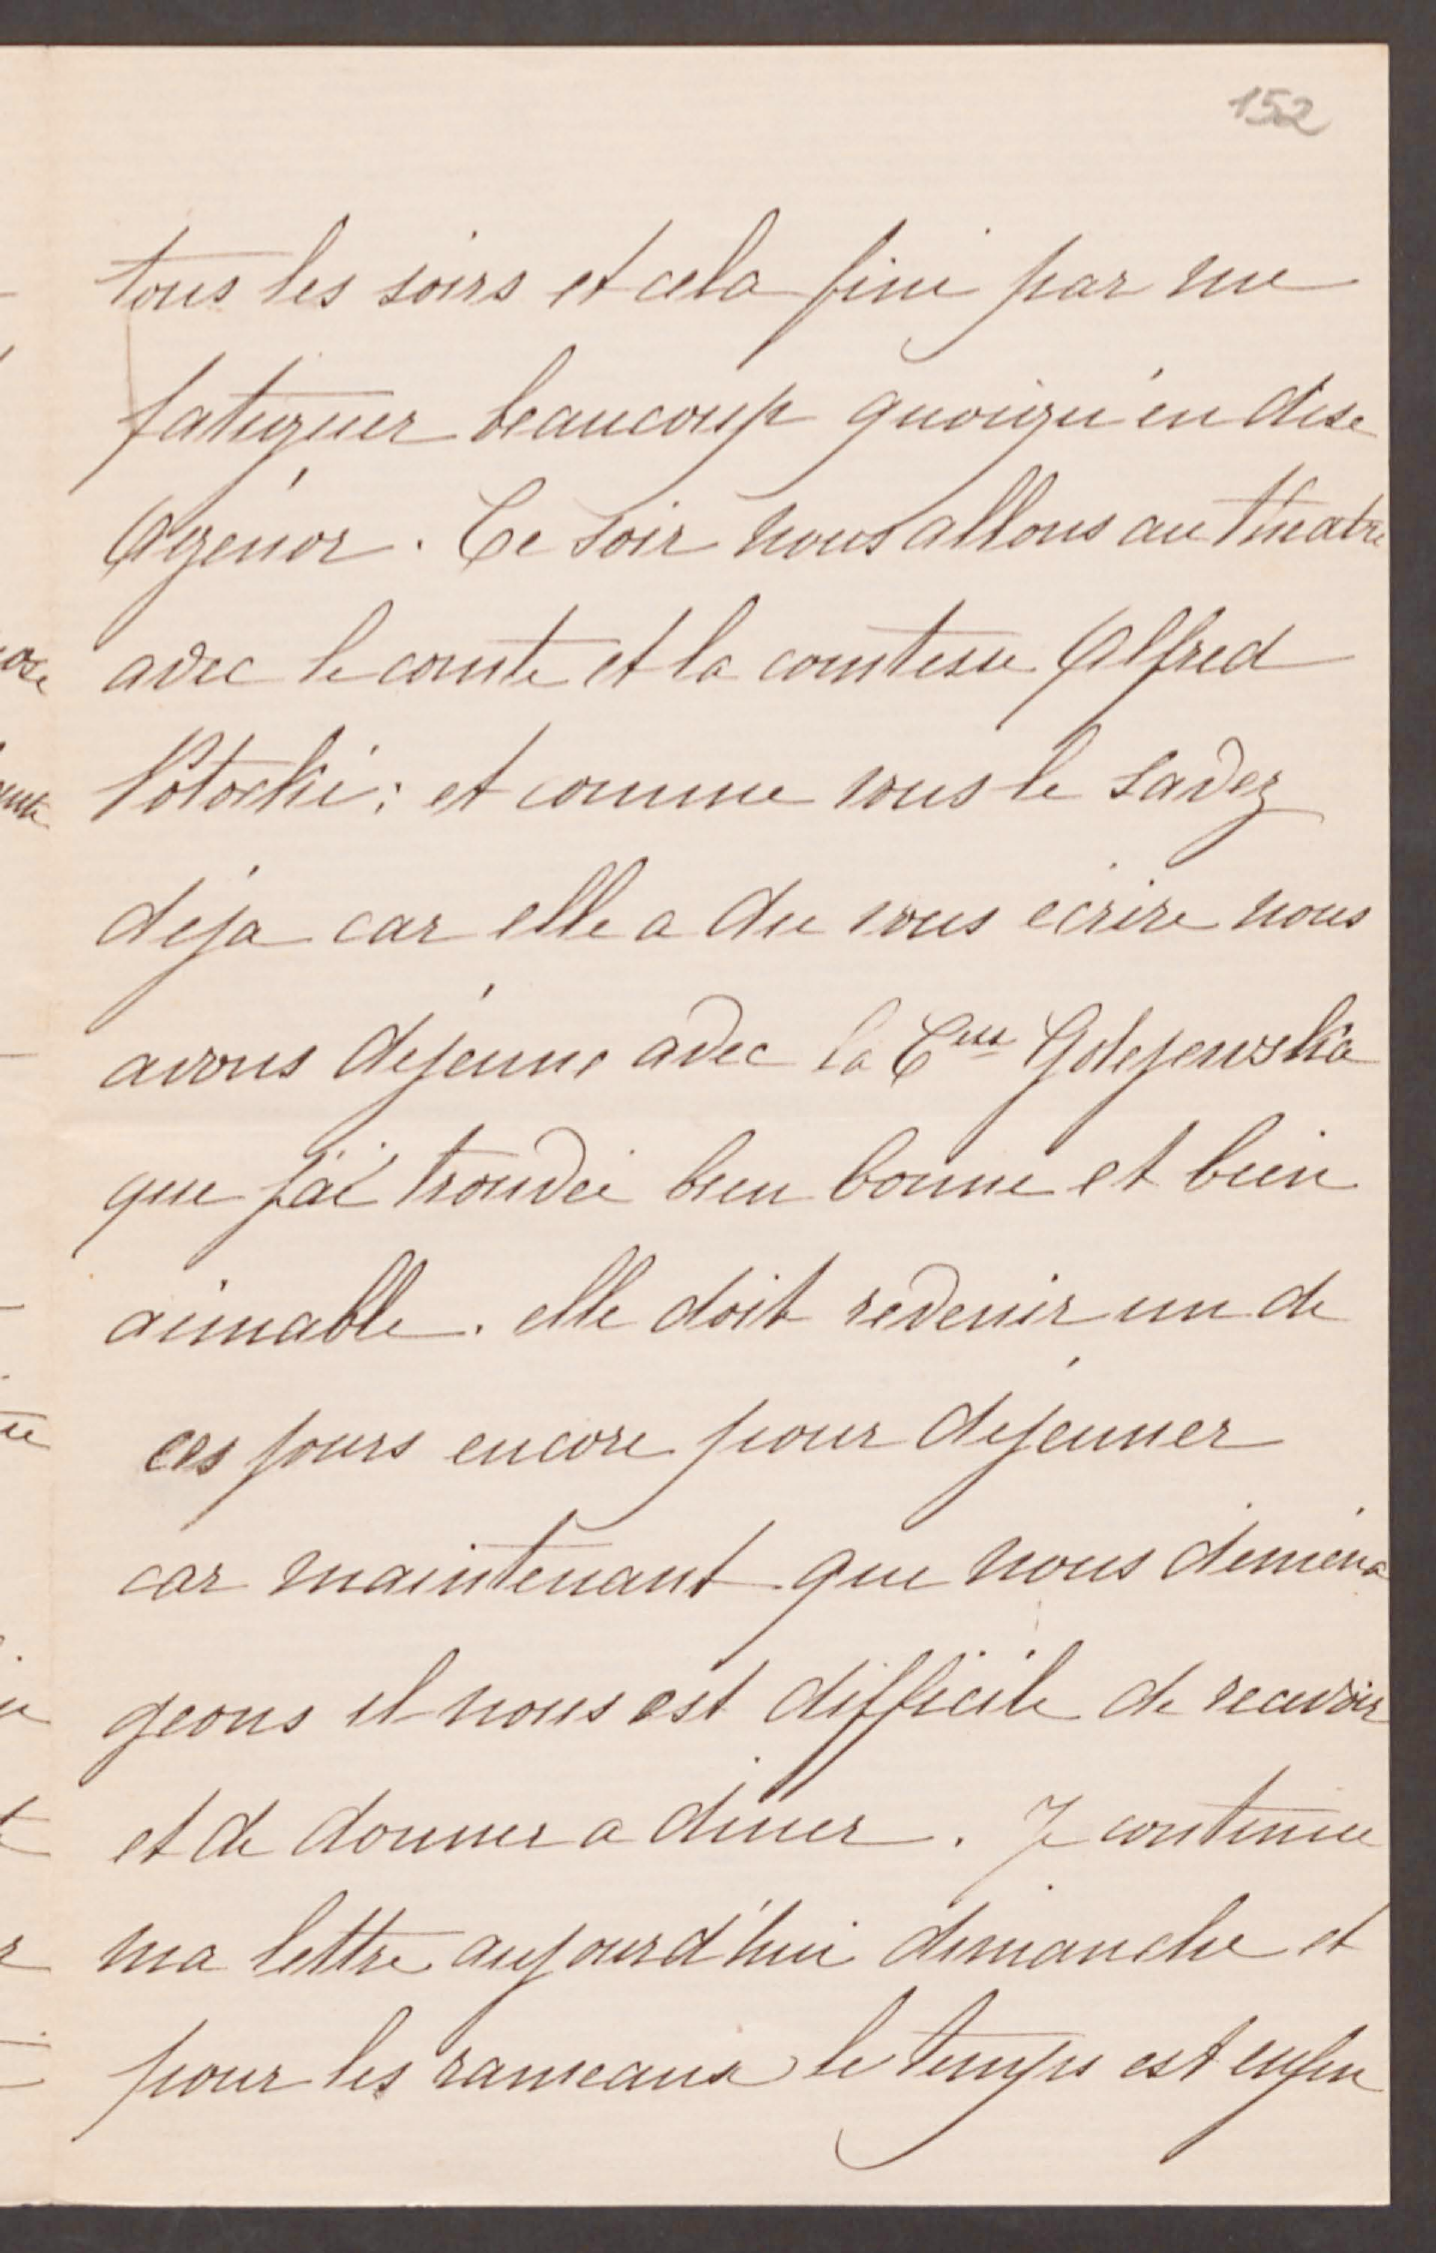 152
tous les soirs et cela fini par me
fatiguer beaucoup quoiqu'en dise
Agénor. Ce soir nous allons au théatre
avec le comte et la comtesse Alfred
Potocki; et comme vous le savez
deja car elle a du vous ecrire nous
avons déjeune avec la Csse Golejewska
que j'ai trouvée bien bonne et bien
aimable. elle doit revenir un de
ces jours encore pour déjeuner
car maintenant que nous démena
geons il nous est difficile de recevoir
et de donner a diner. Je continue
ma lettre aujourd'hui dimanche et
pour les rameaux le temps est enfin